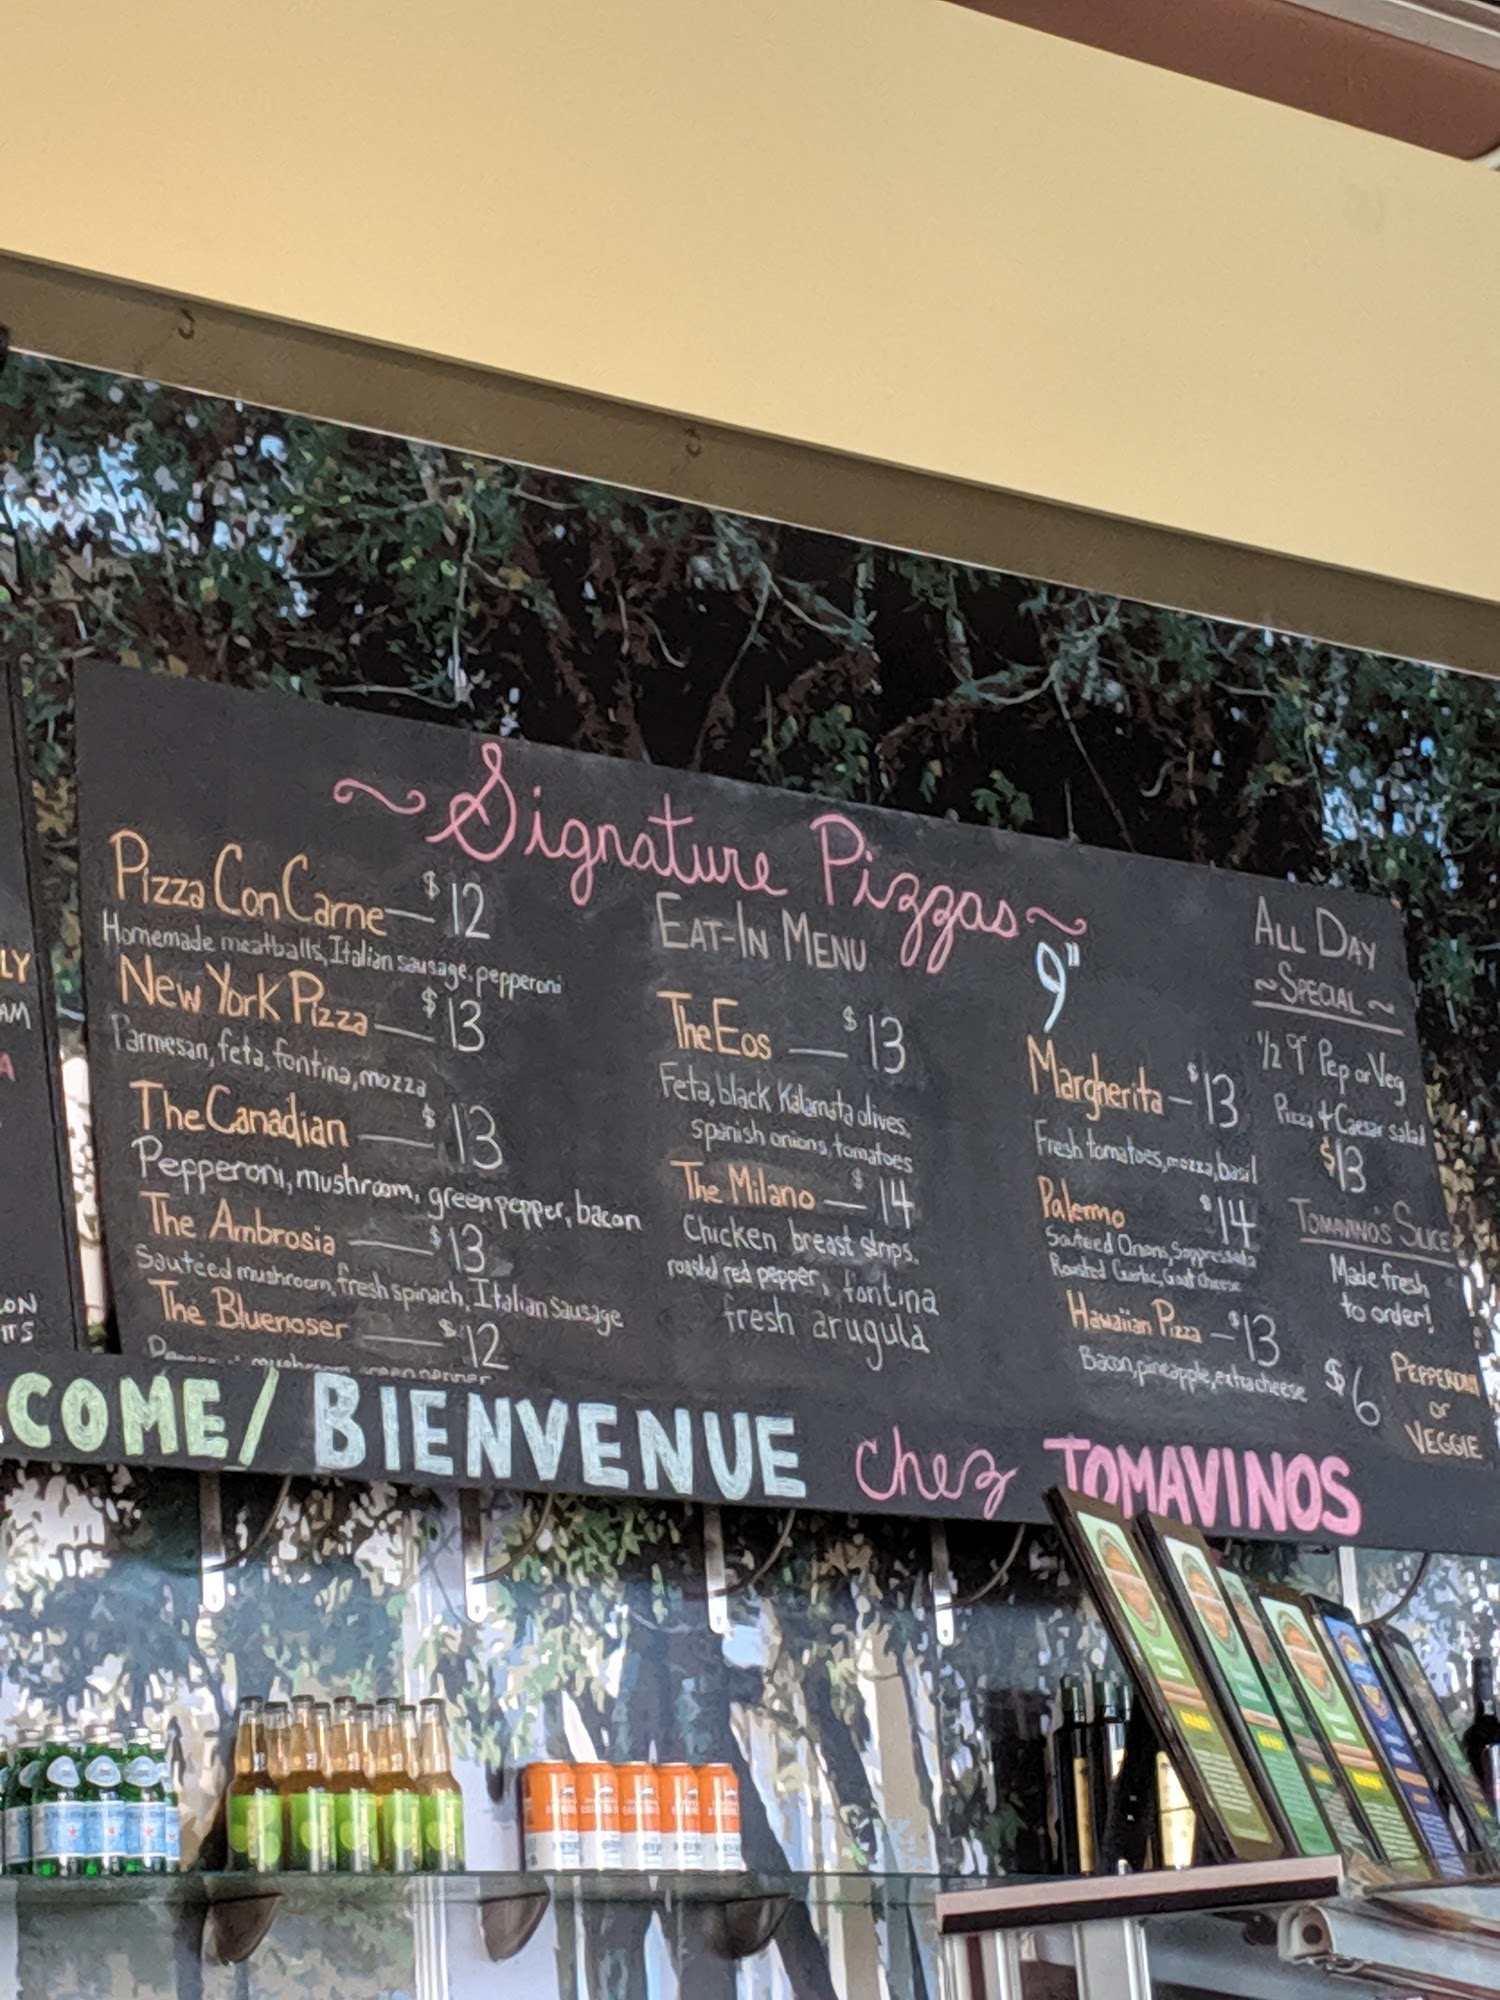 Signature Pizzas
Eat-In Menu
9"
Pizza Con Carne — $12
Homemade meatballs, Italian sausage, pepperoni
New York Pizza — $13
Parmesan, feta, fontina, mozza
The Canadian — $13
Pepperoni, mushroom, green pepper, bacon
The Ambrosia — $13
Sautéed mushroom, fresh spinach, Italian sausage
The Bluenoser — $12
mushroom green pepper
The Eos — $13
Feta, black Kalamata olives,
spanish onions, tomatoes
The Milano — $14
Chicken breast strips,
roasted red pepper, fontina
fresh arugula
Margherita — $13
Fresh tomatoes, mozza, basil
Palermo $14
Sauteed Onions, Soppressata
Roasted Garlic, Goat cheese
Hawaiian Pizza — $13
Bacon, pineapple, extra cheese
All Day
~ Special ~
1/2 9" Pep or Veg
Pizza + Caesar salad
$13
Tomavino's Slice
Made fresh
to order!
$6 Pepperoni
or
Veggie
LY
AM
A
LON
ITS
COME / BIENVENUE chez TOMAVINOS